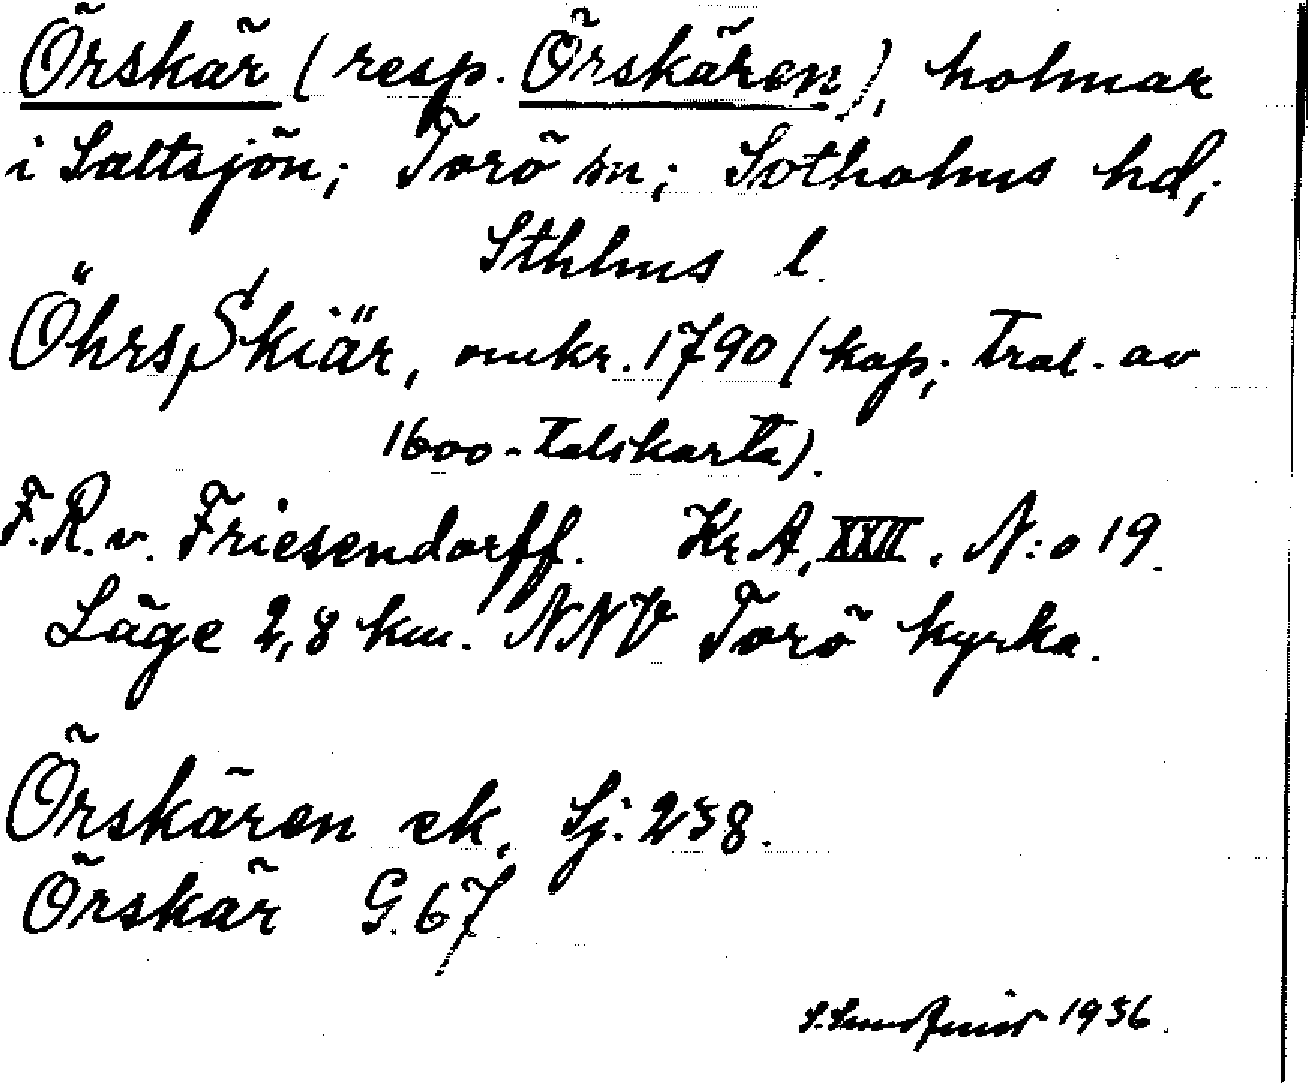 Örskär (resp. Örskären), holmar
i Saltsjön; Torö sn; Sotholms hd,;
Sthlms l.
Öhrs Skiär, omkr. 1790 (kop; Tral. av
1600-talskarta).
F.R.v. Friesendorff. Kr.A. XXII. N:o 19.
Läge 2,8 km. NNV Torö kyrka.
Örskären ek. Sj: 238.
Örskär G. 67
1936.